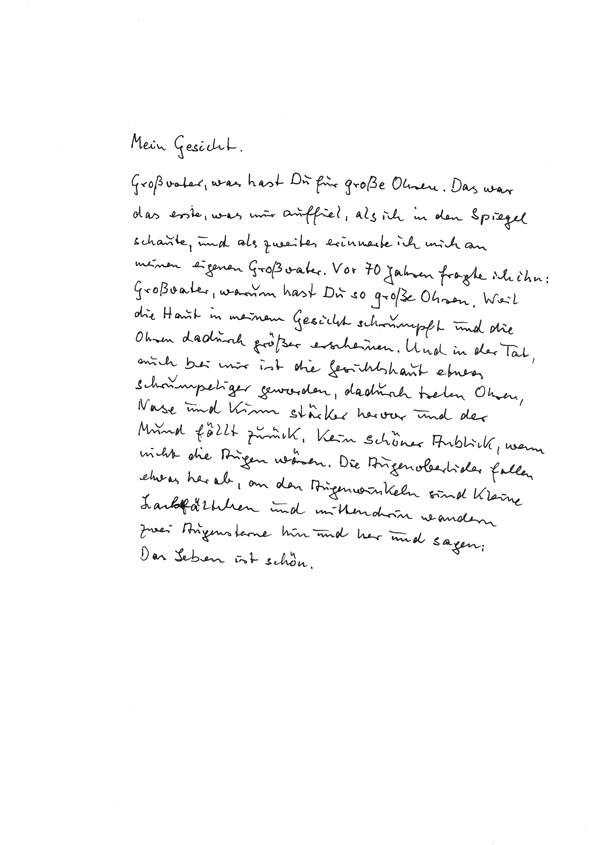 Mein Gesicht.
Großvater, was hast Du für große Ohren. Das war
das erste, was mir auffiel, als ich in den Spiegel
schaute, und als zweites erinnerte ich mich an
meinen eigenen Großvater. Vor 70 Jahren fragte ich ihn:
Großvater, warum hast Du so große Ohren. Weil
die Haut in meinem Gesicht schrumpft und die
Ohren dadurch größer erscheinen. Und in der Tat,
auch bei mir ist die Gesichtshaut etwas
schrumpeliger geworden, dadurch treten Ohren,
Nase und Kinn stärker hervor und der
Mund fällt zurück. Kein schöner Anblick, wenn
nicht die Augen wären. Die Augenoberlider fallen
etwas herab, an den Augenwinkeln sind kleine
Lachfältchen und mittendrin wandern
zwei Augensterne hin und her und sagen:
Das Leben ist schön.